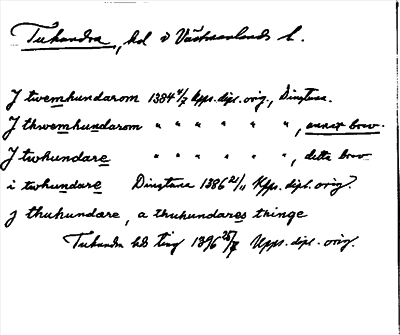 Tuhundra, hd i Västmanlands l.
J twemhundarom 1384 4/7 Upps. dipl. orig., Dingtuna.
J thwemhundarom " " " " " ", annex brev.
J twhundare " " " " " ", detta brev
i twhundare Dingtuna 1386 21/11 Upps. dipl. orig.
j thuhundare, a thuhundares thinge
Tuhundra hds ting 1396 25/7 Upps. dipl. orig.